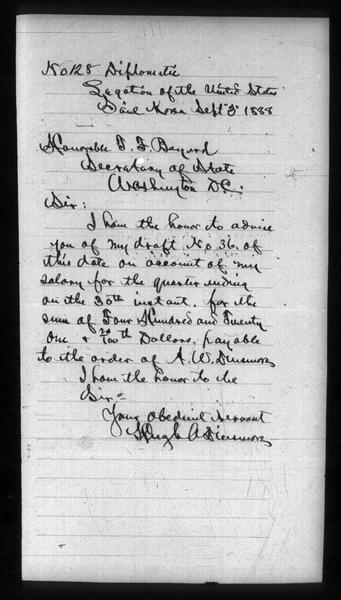 No 128 Diplomatic
Legation of the United States
Söul Korea Sept 3d 1888
Honorable T. F. Bayard
Secretary of State
Washington D.C.:
Sir:
I have the honor to advise
you of my draft No 36. of
this date on account of my
salary for the quarter ending
on the 30th instant, for the
sum of Four Hundred and Twenty
One & 20/100th Dollars, payable
to the order of A. W. Dinsmore
I have the honor to be
Sir=
Your obedient servant
Hugh A Dinsmore